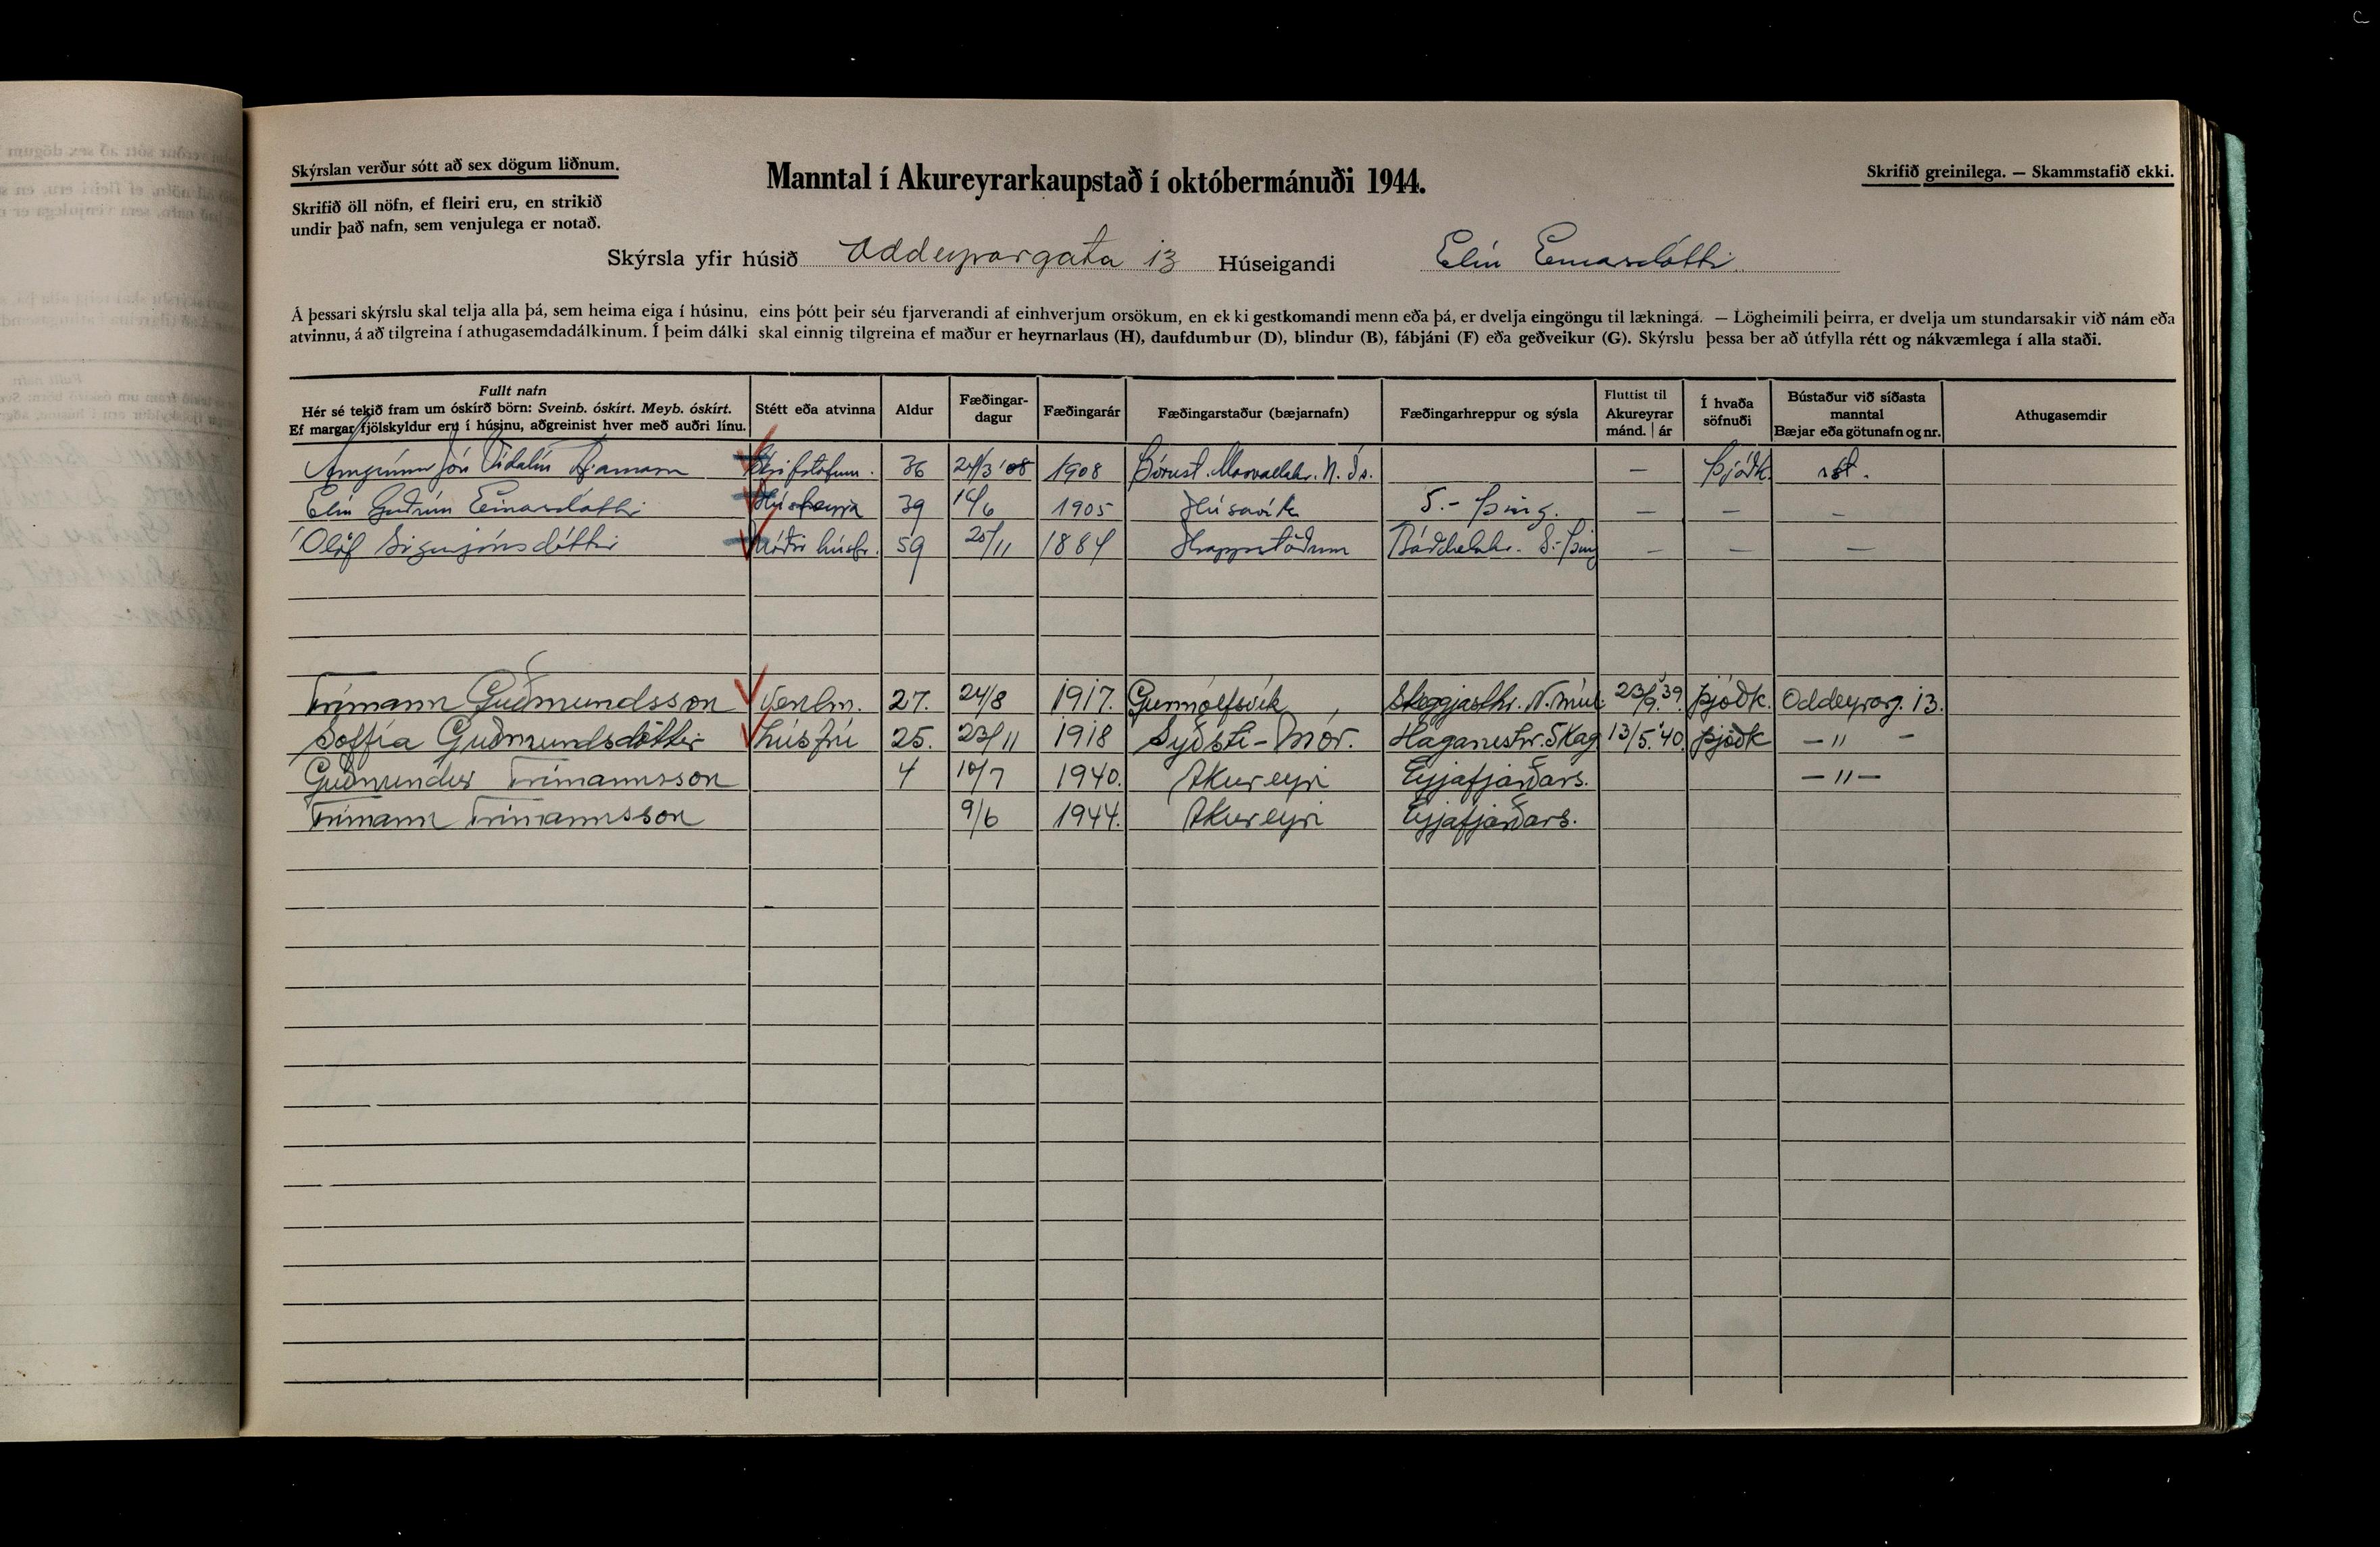 Skýrslan verður sótt að sex dögum liðnum.
Manntal í Akureyrarkaupstað í októbermánuði 1944.
Skrifið greinilega. — Skammstafið ekki.
Skrifið öll nöfn, ef fleiri eru, en strikið
undir það nafn, sem venjulega er notað.
Skýrsla yfir húsið Oddeyrargata 13 Húseigandi Elín Einarsdóttir
Á þessari skýrslu skal telja alla þá, sem heima eiga í húsinu, eins þótt þeir séu fjarverandi af einhverjum orsökum, en ekki gestkomandi menn eða þá, er dvelja eingöngu til lækninga. — Lögheimili þeirra, er dvelja um stundarsakir við nám eða
atvinnu, á að tilgreina í athugasemdadálkinum. Í þeim dálki skal einnig tilgreina ef maður er heyrnarlaus (H), daufdumbur (D), blindur (B), fábjáni (F) eða geðveikur (G). Skýrslu þessa ber að útfylla rétt og nákvæmlega í alla staði.
Fullt nafn
Hér sé tekið fram um óskírð börn: Sveinb. óskírt. Meyb. óskírt.
Ef margar fjölskyldur eru í húsinu, aðgreinist hver með auðri línu.
Stétt eða atvinna
Aldur
Fæðingar-
dagur
Fæðingarár
Fæðingarstaður (bæjarnafn)
Fæðingarhreppur og sýsla
Fluttist til
Akureyrar
mánd. | ár
Í hvaða
söfnuði
Bústaður við síðasta
manntal
Bæjar eða götunafn og nr.
Athugasemdir
Arngrímur Jón Vídalín Bjarnason Skrifstofum. 36 24/3 '08 1908 N. Ís. — Þjóðk.
Elín Guðrún Einarsdóttir Húsfreyja 39 /6 1905 Húsavík S.-Þing. — — —
Ólöf Sigurjónsdóttir Móðir húsfr. 59 25/11 1884 Hrappstöðum Bárðdælahr. S.-Þing — — —
Trímann Guðmundsson Verkm. 27. 24/8 1917. Gunnólfsvík Skeggjasthr. N.múl. 23/9. '39. Þjóðk. Oddeyrarg. 13.
Soffía Guðmundsdóttir húsfrú 25. 23/11 1918 Syðsti-Mór. Haganeshr. Skag 13/5. '40. Þjóðk — " —
Guðmundur Trímannsson 4 10/7 1940. Akureyri Eyjafjarðars. — " —
Trímann Trímannsson 9/6 1944. Akureyri Eyjafjarðars.